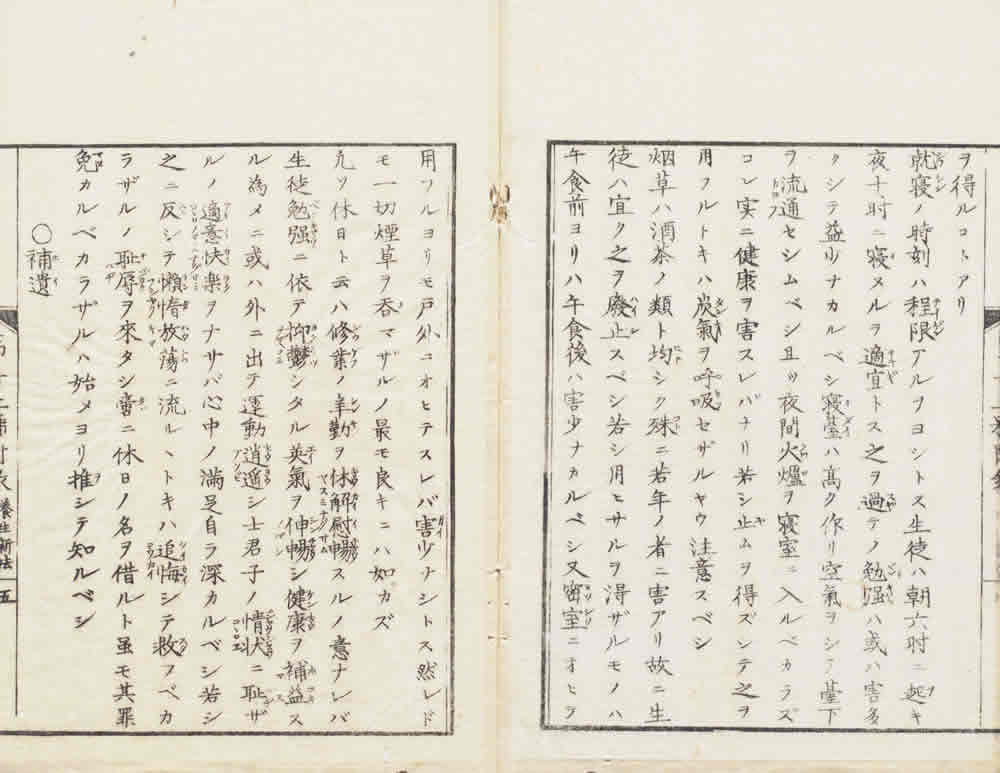 ヲ得ルコトアリ
就寝ノ時刻ハ程限アルヲヨシトス生徒ハ朝六时ニ起キ
夜十时ニ寝メルヲ適宜トス之ヲ過テノ勉强ハ或ハ害多
クシテ益少ナカルベシ寝䑓ハ髙ク作リ空氣ヲシテ䑓下
ヲ流通セシムベシ且ツ夜間火爐ヲ寝室ニ入ルベカラズ
コレ実ニ健康ヲ害スレバナリ若シ止ムヲ得ズシテ之ヲ
用フルトキハ炭氣ヲ呼吸セザルヤウ注意スベシ
烟草ハ酒茶ノ類ト均シク殊ニ若年ノ者ニ害アリ故ニ生
徒ハ宜ク之ヲ廢止スベシ若シ用ヒサルヲ得ザルモノハ
午食前ヨリハ午食後ハ害少ナカルベシ又密室ニオヒテ
用フルヨリモ戸外ニオヒテスレバ害少ナシトス然レド
モ一切煙草ヲ呑マザルノ最モ良キニハ如カズ
凢ソ休日ト云ハ修業ノ辛勤ヲ休解慰暢スルノ意ナレバ
生徒勉强ニ依テ抑鬱シタル英氣ヲ伸暢シ健康ヲ補益ス
ル為メニ或ハ外ニ出テ運動逍遥シ士君子ノ情状ニ耻ザ
ルノ適意快楽ヲナサバ心中ノ満足自ラ深カルベシ若シ
之ニ反シテ懶惰放蕩ニ流ルヽトキハ追悔シテ救フベカ
ラザルノ耻辱ヲ來タシ啻ニ休日ノ名ヲ借ルト虽モ其罪
免カルベカラザルハ始メヨリ推シテ知ルベシ
○補遺
養生新法
五